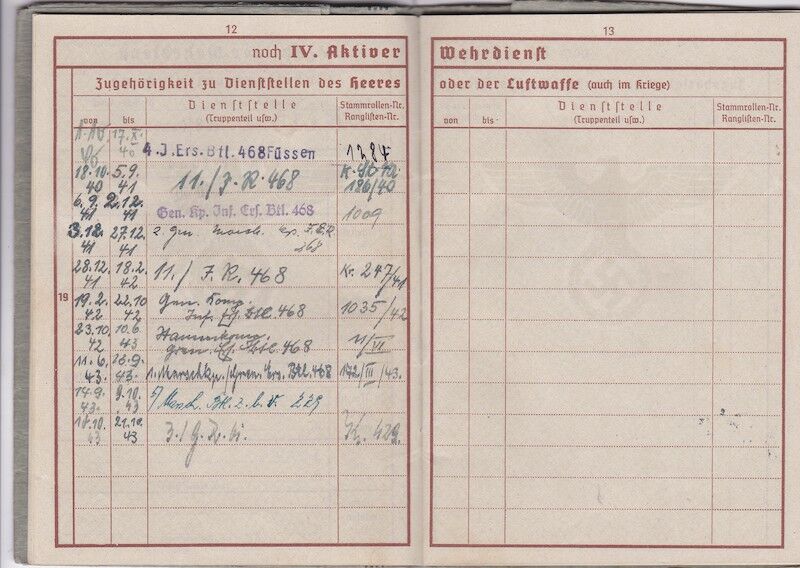 12
noch IV. Aktiver
Zugehörigkeit zu Dienststellen des Heeres
von bis Dienststelle (Truppenteil usw.) Stammrollen-Nr. Ranglisten-Nr.
17.X. 40 4.J.Ers.Btl.468 Füssen 1284
18.10. 40 5.9. 41 11./J.R.468 186/40
6.9. 41 2.12. 41 Gen. Kp. Inf. Ers. Btl. 468 1009
3.12. 41 27.12. 41 2. Gen.
28.12. 41 18.2. 42 11./J.R.468 Kr. 247/41
19
19.2. 42 22.10 42 Gen. Komp. Inf. Ers. Btl. 468 1035/42
23.10. 42 10.6. 43 Stammkomp. Gren. Ers. Btl. 468 11/VI
11.6. 43. 1. Marschkp./Gren. Ers. Btl. 468 172/III/43.
14.9. 43. 9.10. 43 Marsch. Btl. z.b.V.
21.10. 43 3./G.R.
13
Wehrdienst
oder der Luftwaffe (auch im Kriege)
von bis Dienststelle (Truppenteil usw.) Stammrollen-Nr. Ranglisten-Nr.